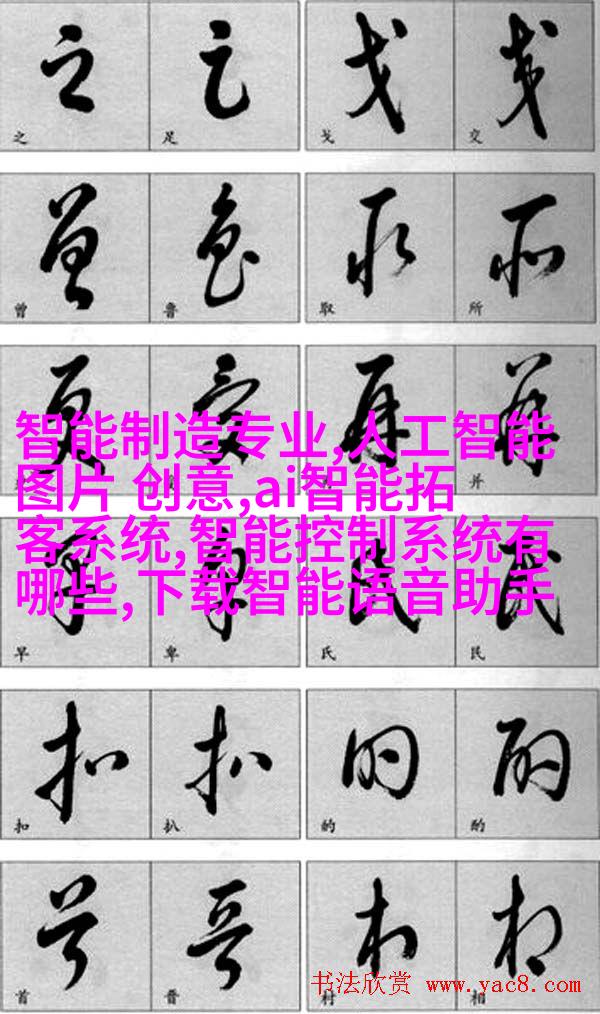 之 足 戈 交
曾 鲁 取 所
智能制造专业,人工智能
图片 创意,ai智能拓
并
客系统,智能控制系统有
哪些,下载智能语音助手
早 卑 氏 民
扣 扒 的 酌
首 晋 村 相
书法欣赏 www.yac8.com